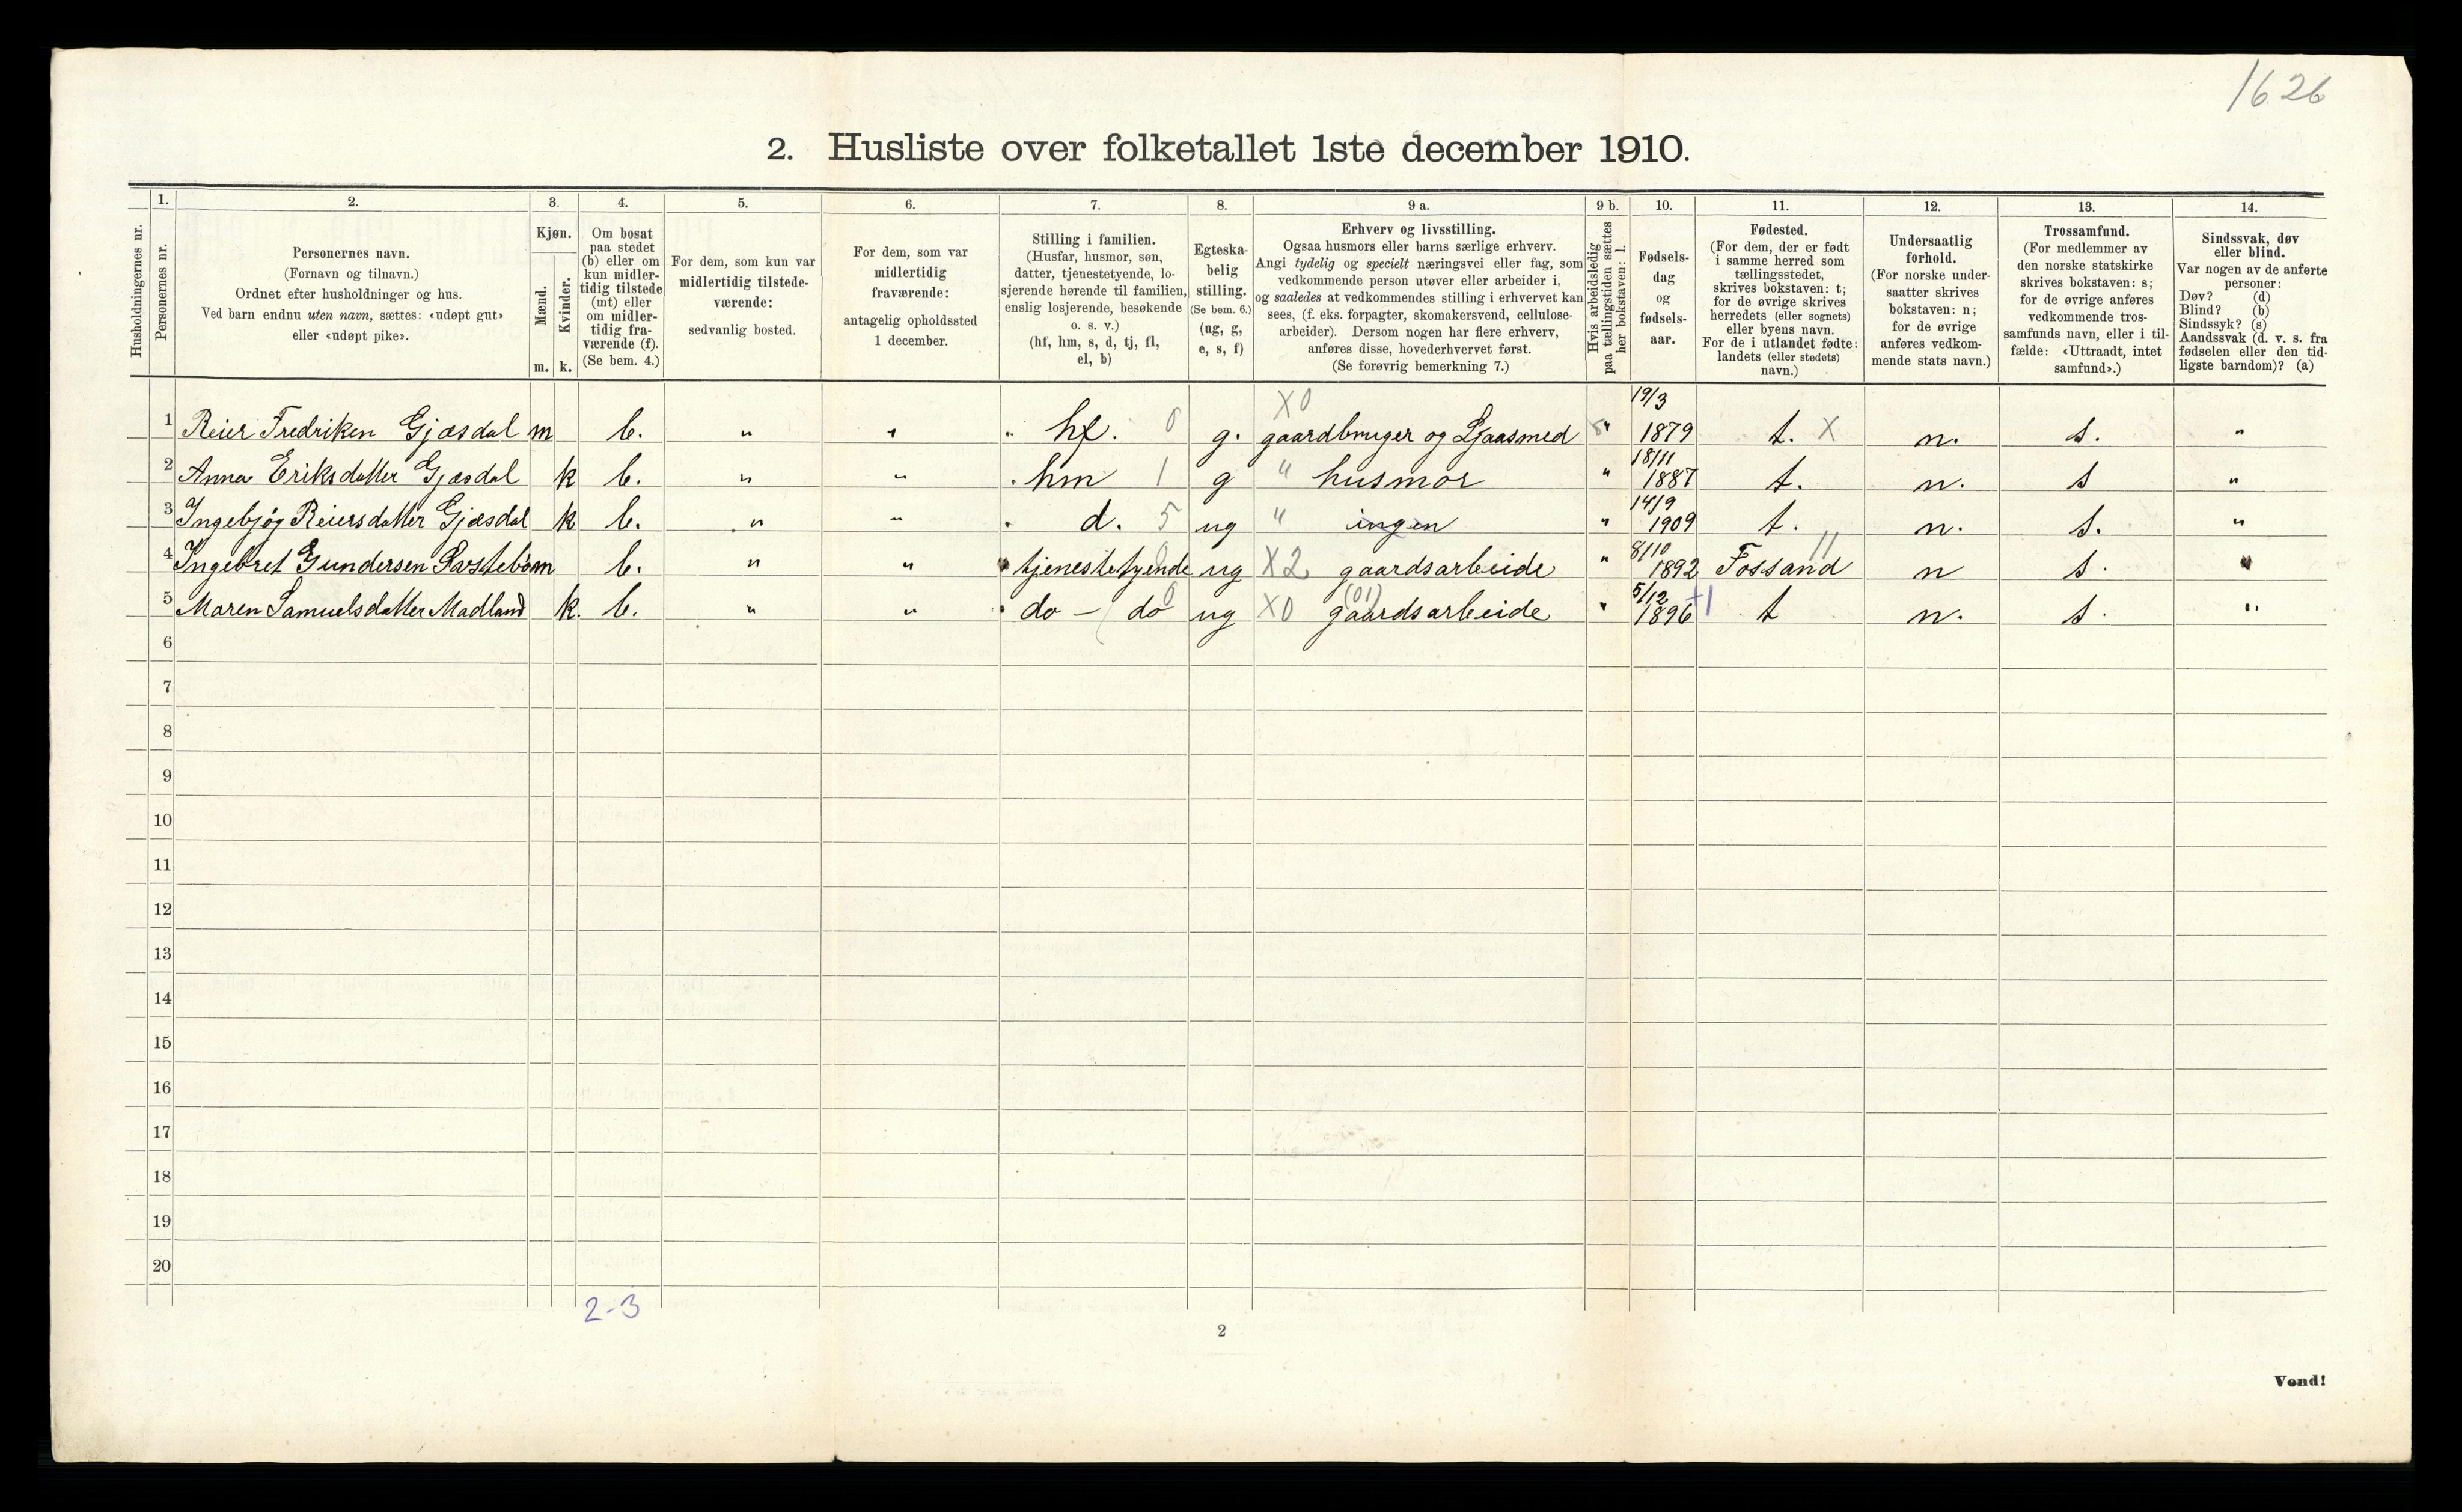 1626
2. Husliste over folketallet 1ste december 1910.
1. 2. 3. 4. 5. 6. 7. 8. 9 a. 9 b. 10. 11. 12. 13. 14.
Husholdningernes nr.
Personernes nr.
Personernes navn.
(Fornavn og tilnavn.)
Ordnet efter husholdninger og hus.
Ved barn endnu uten navn, sættes: «udøpt gut»
eller «udøpt pike».
Kjøn.
Mænd.
Kvinder.
m. k.
Om bosat
paa stedet
(b) eller om
kun midler-
tidig tilstede
(mt) eller
om midler-
tidig fra-
værende (f).
(Se bem. 4.)
For dem, som kun var
midlertidig tilstede-
værende:
sedvanlig bosted.
For dem, som var
midlertidig
fraværende:
antagelig opholdssted
1 december.
Stilling i familien.
(Husfar, husmor, søn,
datter, tjenestetyende, lo-
sjerende hørende til familien,
enslig losjerende, besøkende
o. s. v.)
(hf, hm, s, d, tj, fl,
el, b)
Egteska-
belig
stilling.
(Se bem. 6.)
(ug, g,
e, s, f)
Erhverv og livsstilling.
Ogsaa husmors eller barns særlige erhverv.
Angi tydelig og specielt næringsvei eller fag, som
vedkommende person utøver eller arbeider i,
og saaledes at vedkommendes stilling i erhvervet kan
sees, (f. eks. forpagter, skomakersvend, cellulose-
arbeider). Dersom nogen har flere erhverv,
anføres disse, hovederhvervet først.
(Se forøvrig bemerkning 7.)
Hvis arbeidsledig
paa tællingstiden sættes
her bokstaven: l.
Fødsels-
dag
og
fødsels-
aar.
Fødested.
(For dem, der er født
i samme herred som
tællingsstedet,
skrives bokstaven: t;
for de øvrige skrives
herredets (eller sognets)
eller byens navn.
For de i utlandet fødte:
landets (eller stedets)
navn.)
Undersaatlig
forhold.
(For norske under-
saatter skrives
bokstaven: n;
for de øvrige
anføres vedkom-
mende stats navn.)
Trossamfund.
(For medlemmer av
den norske statskirke
skrives bokstaven: s;
for de øvrige anføres
vedkommende tros-
samfunds navn, eller i til-
fælde: «Uttraadt, intet
samfund».)
Sindssvak, døv
eller blind.
Var nogen av de anførte
personer:
Døv? (d)
Blind? (b)
Sindssyk? (s)
Aandssvak (d. v. s. fra
fødselen eller den tid-
ligste barndom)? (a)
X0 19/3
1 Reier Fredriken Gjæsdal m b. " " hf. 0 g. gaardbruger og Ljaasmed " 1879 t. X n. s. "
18/11
2 Anna Eriksdatter Gjæsdal k b. " " hm 1 g " husmor " 1887 t. n. s "
14/9
3 Ingebjøg Reiersdatter Gjæsdal k b. " " d. 5 ug " ingen " 1909 t. n. s. "
8/10 11
4 Ingebret Gundersen m b. " " tjenestetyende 0 ug X2 gaardsarbeide " 1892 Fossand n s. "
(01) 5/12
5 Maren Samuelsdatter Madland k. b. " " do - do 0 ug X0 gaardsarbeide " 1896 +1 t n. s. "
6
7
8
9
10
11
12
13
14
15
16
17
18
19
20
2-3
2
Vend!